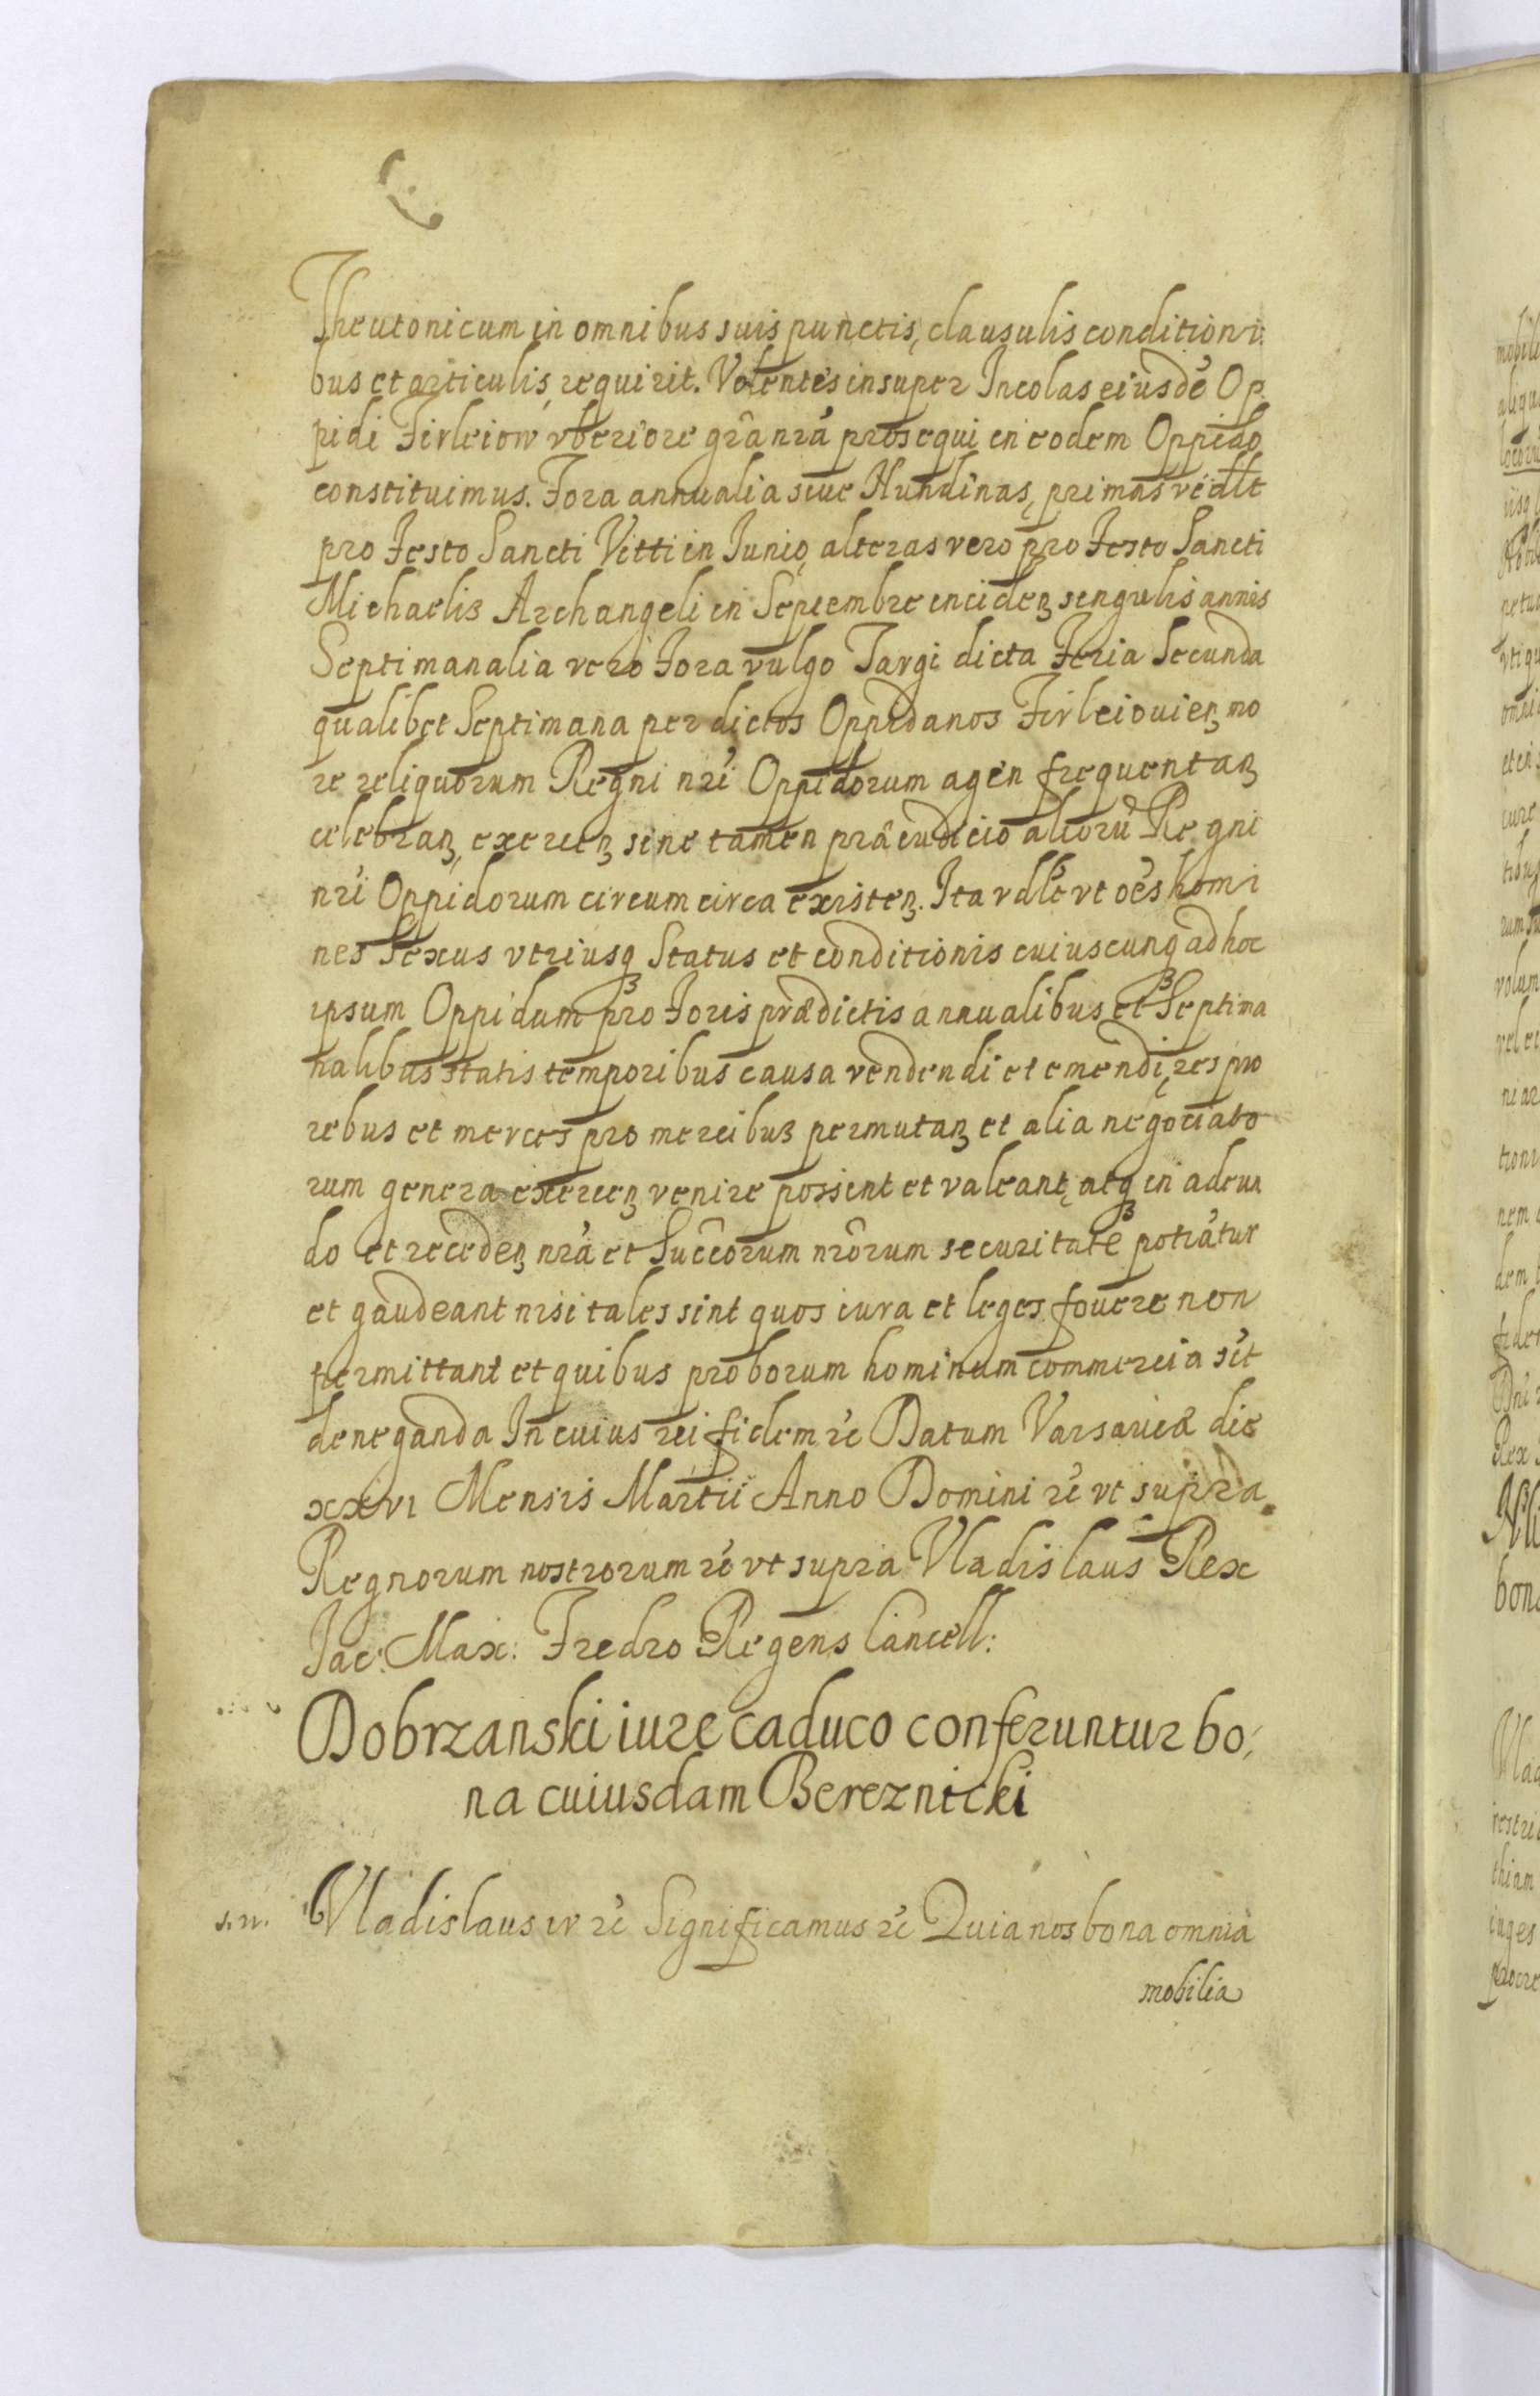 Theutonicum in omnibus suis punctis, clausulis conditioni:
bus et articulis, requirit. Volentes insuper Incolas eiusdē Op.
pidi Firleiow vberiore grâ nrá prosequi in eodem Oppido
constituimus. Fora annualia siue Nundinas, primas vidlt
pro Festo Sancti Vitti in Junio, alteras vero pro Festo Sancti
Michaelis Archangeli in Septembre incideñ singulis annis
Septimanalia verò Fora vulgo Targi dicta Feria Secunda
qualibet Septimana per dictos Oppidanos Firleiouieñ mo
re reliquorum Regni nrí Oppidorum agen frequentañ
celebrañ, exerceñ sine tamen prâeiudicio aliorū Regni
nrí Oppidorum circum circa existeñ. Ita vdlt vt oēs homi
nes Sexus vtriusqꝫ Status et conditionis cuiuscunqꝫ ad hoc
ipsum Oppidum pro Foris prædictis annualibus et Septima
nalibus statis temporibus causa vendendi et emendi, res pro
rebus et merces pro mercibus permutañ et alia negociato
rum genera exerceñ venire possint et valeant, atqꝫ in adeun
do et recedeñ nrá et Succorum nrôrum securitatē potiātur
et gaudeant nisi tales sint quos iura et leges fouere non
permittant et quibus proborum hominum commercia sīt
deneganda In cuius rei fidem ꝛc Datum Varsauiæ die
xxvi Mensis Martii Anno Domini ꝛc vt supra.
Regnorum nostrorum ꝛc vt supra Vladislaus Rex
Jac: Max: Fredro Regens Cancell:
Dobrzanski iure caduco conferuntur bo,
na cuiusdam Bereznicki
Vladislaus iv ꝛc Significamus ꝛc Quia nos bona omnia
mobilia